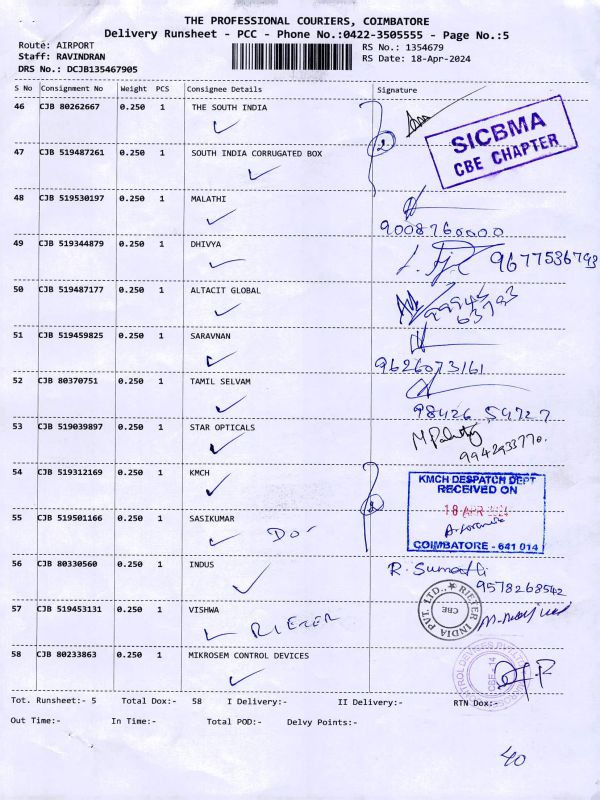 THE PROFESSIONAL COURIERS, COIMBATORE
Delivery Runsheet - PCC - Phone No.:0422-3505555 - Page No.:5
Route: AIRPORT
RS No.: 1354679
Staff: RAVINDRAN
RS Date: 18-Apr-2024
DRS No.: DCJB135467905
S No Consignment No Weight PCS Consignee Details Signature
46 CJB 80262667 0.250 1 THE SOUTH INDIA
2
SICBMA
CBE CHAPTER
47 CJB 519487261 0.250 1 SOUTH INDIA CORRUGATED BOX
48 CJB 519530197 0.250 1 MALATHI
9008760000
49 CJB 519344879 0.250 1 DHIVYA
9677536793
50 CJB 519487177 0.250 1 ALTACIT GLOBAL
99945
63793
51 CJB 519459825 0.250 1 SARAVNAN
9626073161
52 CJB 80370751 0.250 1 TAMIL SELVAM
98426 54727
53 CJB 519039897 0.250 1 STAR OPTICALS
9942933770.
54 CJB 519312169 0.250 1 KMCH
2
KMCH DESPATCH DEPT
RECEIVED ON
18 APR
COIMBATORE - 641 014
55 CJB 519501166 0.250 1 SASIKUMAR
Do-
56 CJB 80330560 0.250 1 INDUS
R. Sumathi
9578268542
57 CJB 519453131 0.250 1 VISHWA
RIETER
RIETER INDIA PVT. LTD.,
CBE
58 CJB 80233863 0.250 1 MIKROSEM CONTROL DEVICES
CBE-14
Tot. Runsheet:- 5 Total Dox:- 58 I Delivery:- II Delivery:- RTN Dox:-
Out Time:- In Time:- Total POD:- Delvy Points:-
40